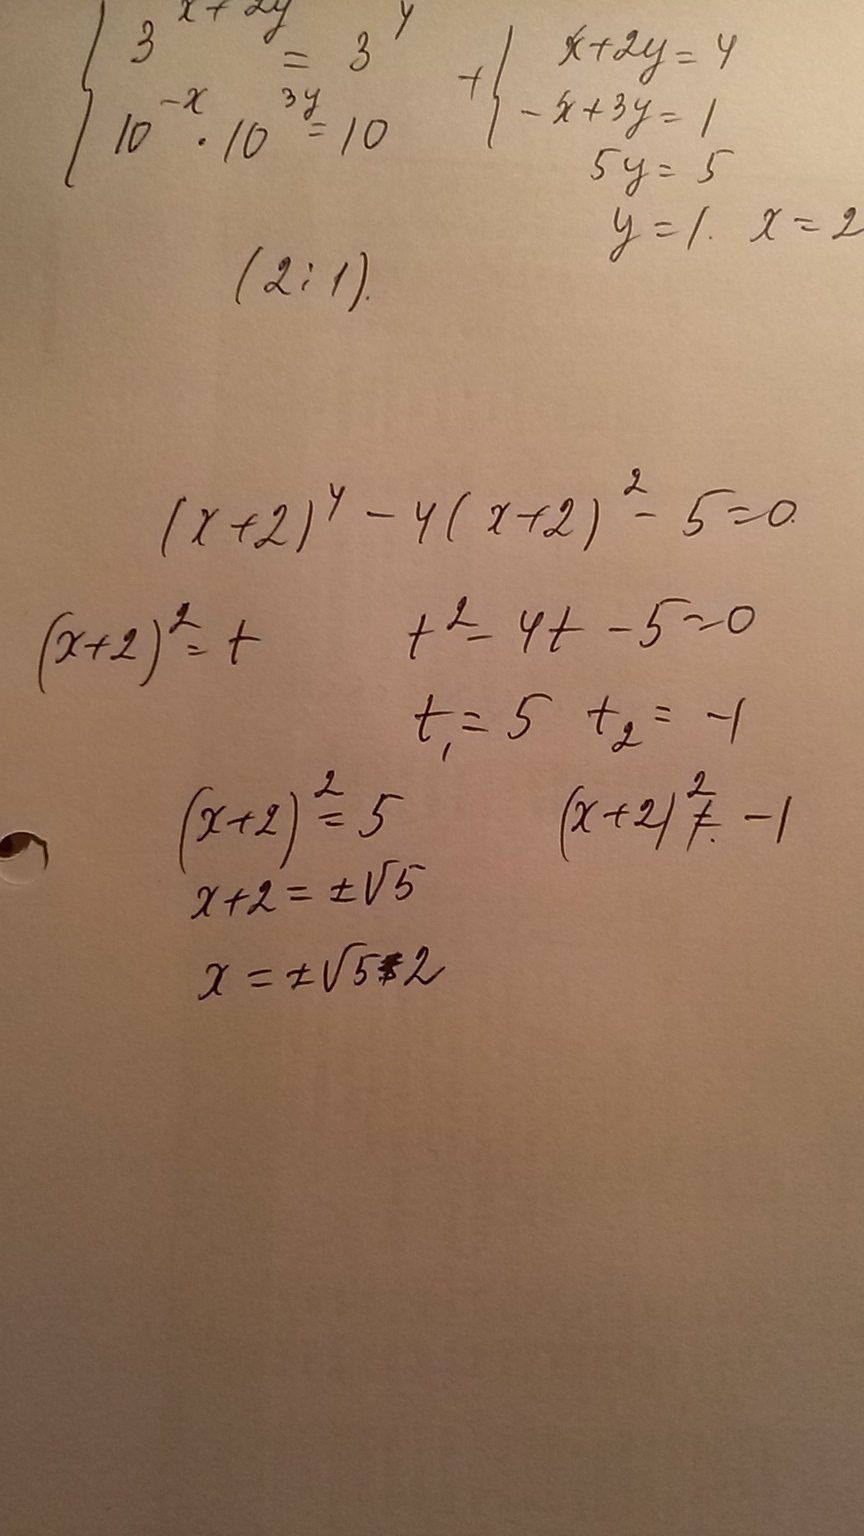 { 3^(x+2y) = 3^4
10^(-x) · 10^(3y) = 10
+{ x+2y=4
-x+3y=1
5y=5
y=1. x=2
(2;1).
(x+2)^4 - 4(x+2)^2 - 5=0.
(x+2)^2 = t
t^2 - 4t - 5=0
t₁=5 t₂=-1
(x+2)^2 = 5
(x+2)^2 ≠ -1
x+2=±√5
x=±√5-2